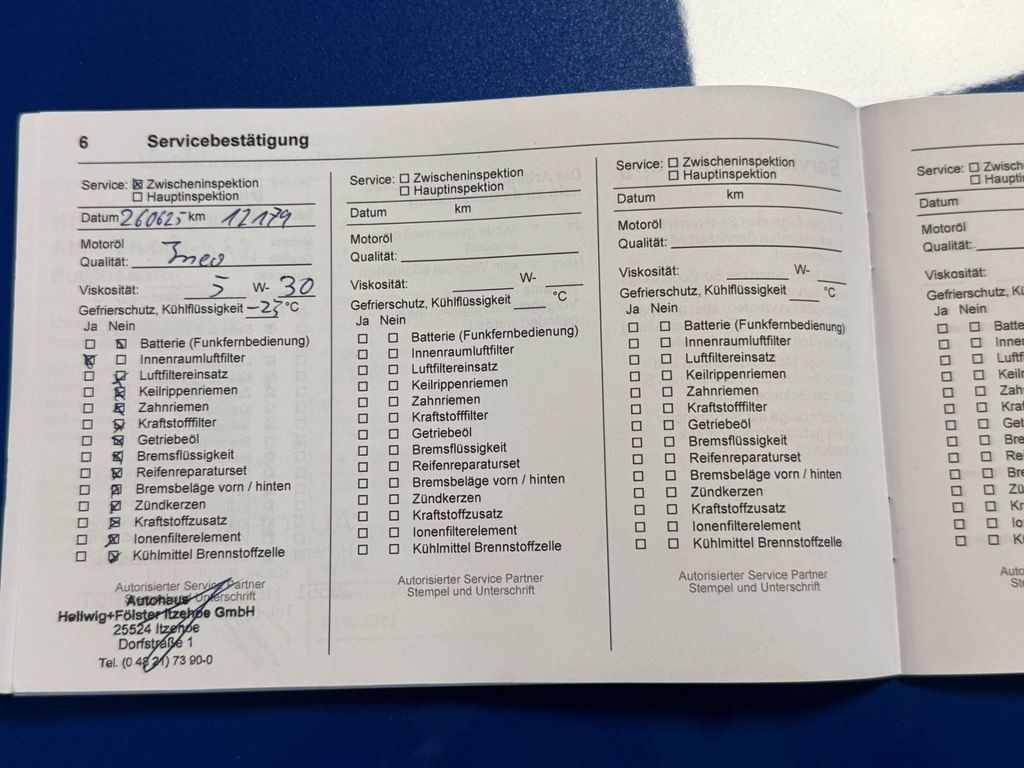 6 Servicebestätigung
Service: ☒ Zwischeninspektion
☐ Hauptinspektion
Datum 260625 km 12179
Motoröl
Qualität: Ineo
Viskosität: 5 W- 30
Gefrierschutz, Kühlflüssigkeit -23 °C
Ja Nein
☐ ☒ Batterie (Funkfernbedienung)
☒ ☐ Innenraumluftfilter
☐ ☒ Luftfiltereinsatz
☐ ☒ Keilrippenriemen
☐ ☒ Zahnriemen
☐ ☒ Kraftstofffilter
☐ ☒ Getriebeöl
☐ ☒ Bremsflüssigkeit
☐ ☒ Reifenreparaturset
☐ ☒ Bremsbeläge vorn / hinten
☐ ☒ Zündkerzen
☐ ☒ Kraftstoffzusatz
☐ ☒ Ionenfilterelement
☐ ☒ Kühlmittel Brennstoffzelle
Autorisierter Service Partner
Stempel und Unterschrift
Autohaus
Hellwig+Fölster Itzehoe GmbH
25524 Itzehoe
Dorfstraße 1
Tel. (0 48 21) 73 90-0
Service: ☐ Zwischeninspektion
☐ Hauptinspektion
Datum km
Motoröl
Qualität:
Viskosität: W-
Gefrierschutz, Kühlflüssigkeit °C
Ja Nein
☐ ☐ Batterie (Funkfernbedienung)
☐ ☐ Innenraumluftfilter
☐ ☐ Luftfiltereinsatz
☐ ☐ Keilrippenriemen
☐ ☐ Zahnriemen
☐ ☐ Kraftstofffilter
☐ ☐ Getriebeöl
☐ ☐ Bremsflüssigkeit
☐ ☐ Reifenreparaturset
☐ ☐ Bremsbeläge vorn / hinten
☐ ☐ Zündkerzen
☐ ☐ Kraftstoffzusatz
☐ ☐ Ionenfilterelement
☐ ☐ Kühlmittel Brennstoffzelle
Autorisierter Service Partner
Stempel und Unterschrift
Service: ☐ Zwischeninspektion
☐ Hauptinspektion
Datum km
Motoröl
Qualität:
Viskosität: W-
Gefrierschutz, Kühlflüssigkeit °C
Ja Nein
☐ ☐ Batterie (Funkfernbedienung)
☐ ☐ Innenraumluftfilter
☐ ☐ Luftfiltereinsatz
☐ ☐ Keilrippenriemen
☐ ☐ Zahnriemen
☐ ☐ Kraftstofffilter
☐ ☐ Getriebeöl
☐ ☐ Bremsflüssigkeit
☐ ☐ Reifenreparaturset
☐ ☐ Bremsbeläge vorn / hinten
☐ ☐ Zündkerzen
☐ ☐ Kraftstoffzusatz
☐ ☐ Ionenfilterelement
☐ ☐ Kühlmittel Brennstoffzelle
Autorisierter Service Partner
Stempel und Unterschrift
Service: ☐ Zwisch
☐ Haupti
Datum
Motoröl
Qualität:
Viskosität:
Gefrierschutz, Kü
Ja Nein
☐ ☐ Batte
☐ ☐ Inne
☐ ☐ Luft
☐ ☐ Keil
☐ ☐ Zah
☐ ☐ Kra
☐ ☐ Get
☐ ☐ Bre
☐ ☐ Re
☐ ☐ Br
☐ ☐ Zü
☐ ☐ Kr
☐ ☐ Io
☐ ☐ K
Auto
S